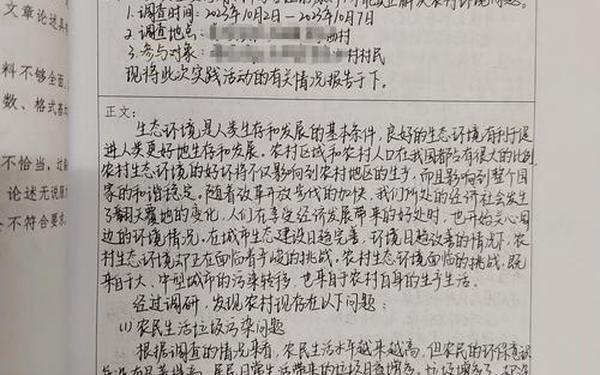 文章论述具
料不够全面
数、格式基本
不恰当,过
论述无说
不符合要求
1.调查时间:2023年10月2日—2023年10月7日
2.调查地点: 西村
3.参与对象: 村村民
现将此次实践活动的有关情况报告于下。
正文:
生态环境是人类生存和发展的基本条件,良好的生态环境有利于促
进人类更好地生存和发展。农村区域和农村人口在我国都占有很大的比例
农村生态环境的好坏将不仅影响到农村地区的生产,而且影响到整个国
家的和谐稳定。随着改革开放步伐的加快,我们所处的经济社会发生
了翻天覆地的变化,人们在享受经济发展带来的好处时,也开始关心周
边的环境情况。在城市生态建设日趋完善,环境日趋改善的情况下,农
村生态环境却正在面临着予顷的挑战。农村生态环境面临的挑战,既
来自于大、中型城市的污染转移,也来自于农村自身的生产生活。
经过调研,发现农村现存在以下问题:
(1)农民生活垃圾污染问题
根据调查的情况来看,农民生活水平越来越高,但农民的环保意识
没有显著提高,居民日常生活带来的垃圾日益增多,垃圾增多了,